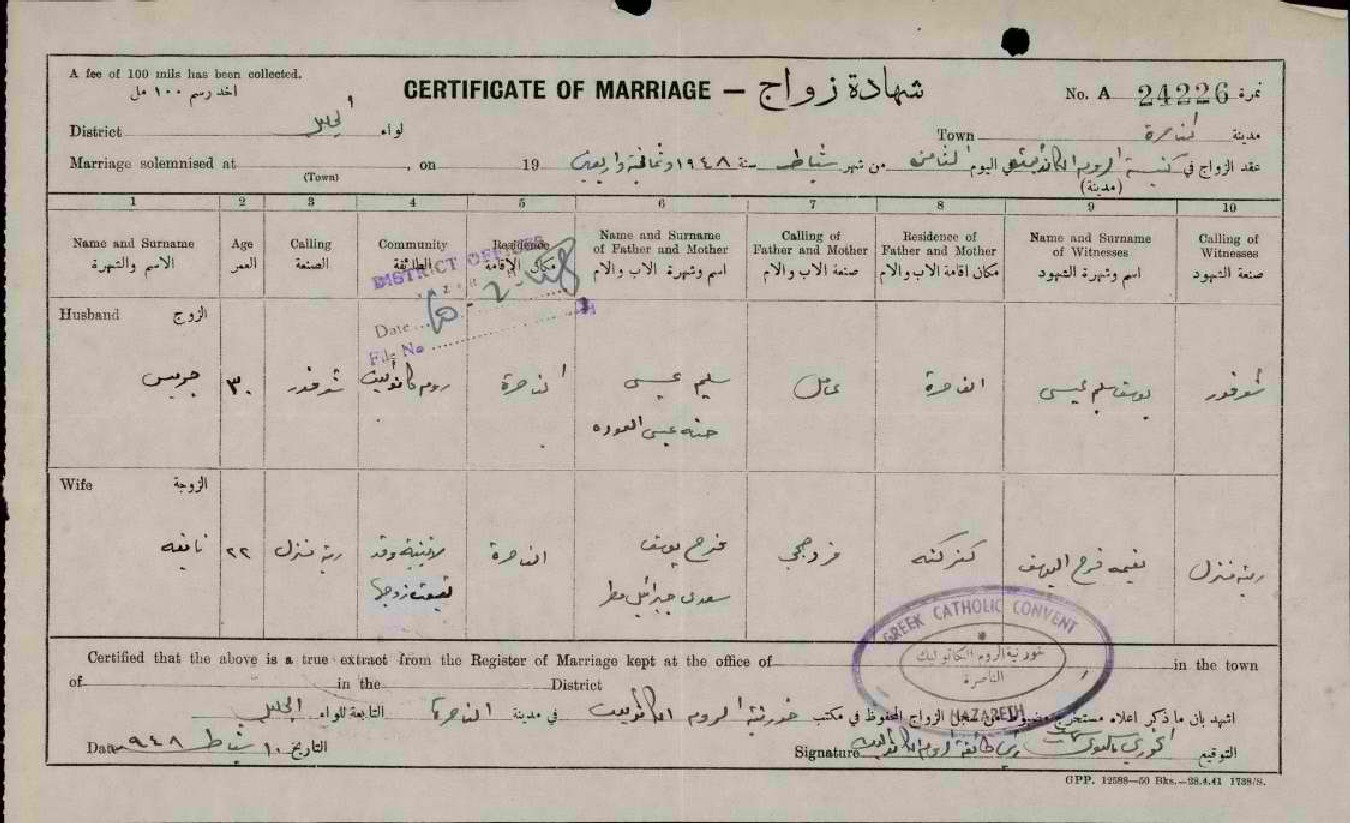 A fee of 100 mils has been collected.
اخذ رسم ١٠٠ مل
CERTIFICATE OF MARRIAGE — شهادة زواج
No. A 24226 نمرة
District الجليل لواء
Town الناصرة مدينة
Marriage solemnised at , on 19
(Town)
عقد الزواج في كنيسة الروم الكاثوليك اليوم الثامن من شهر شباط سنة ١٩٤٨ وثمانية واربعين
(مدينة)
1 2 3 4 5 6 7 8 9 10
Name and Surname
الاسم والشهرة
Age
العمر
Calling
الصنعة
Community
الطائفة
Residence
مكان الإقامة
Name and Surname of Father and Mother
اسم وشهرة الاب والام
Calling of Father and Mother
صنعة الاب والام
Residence of Father and Mother
مكان اقامة الاب والام
Name and Surname of Witnesses
اسم وشهرة الشهود
Calling of Witnesses
صنعة الشهود
DISTRICT OFFICES
Date
File No
Husband الزوج
جريس
٣٠
شوفور
روم كاثوليك
الناصرة
سليم عيسى
حنه عيسى العوده
عامل
الناصرة
يوسف سليم عيسى
شوفور
Wife الزوجة
نايفه
٢٢
ربة منزل
وقد
تبعت زوجها
الناصرة
فرح يوسف
سعدى جبرائيل مطر
كفركنه
نعيمه فرح اليوسف
ربة منزل
GREEK CATHOLIC CONVENT
خورنية الروم الكاثوليك
الناصرة
NAZARETH
Certified that the above is a true extract from the Register of Marriage kept at the office of in the town
of in the District
اشهد بان ما ذكر اعلاه مستخرج مضبوط من سجل الزواج المحفوظ في مكتب خورنية الروم الكاثوليك في مدينة الناصرة التابعة للواء الجليل
Date ١٠ شباط ٩٤٨ التاريخ
Signature الخوري راعي طائفة الروم الكاثوليك التوقيع
GPP. 12588—50 Bks.—28.4.41 1738/S.